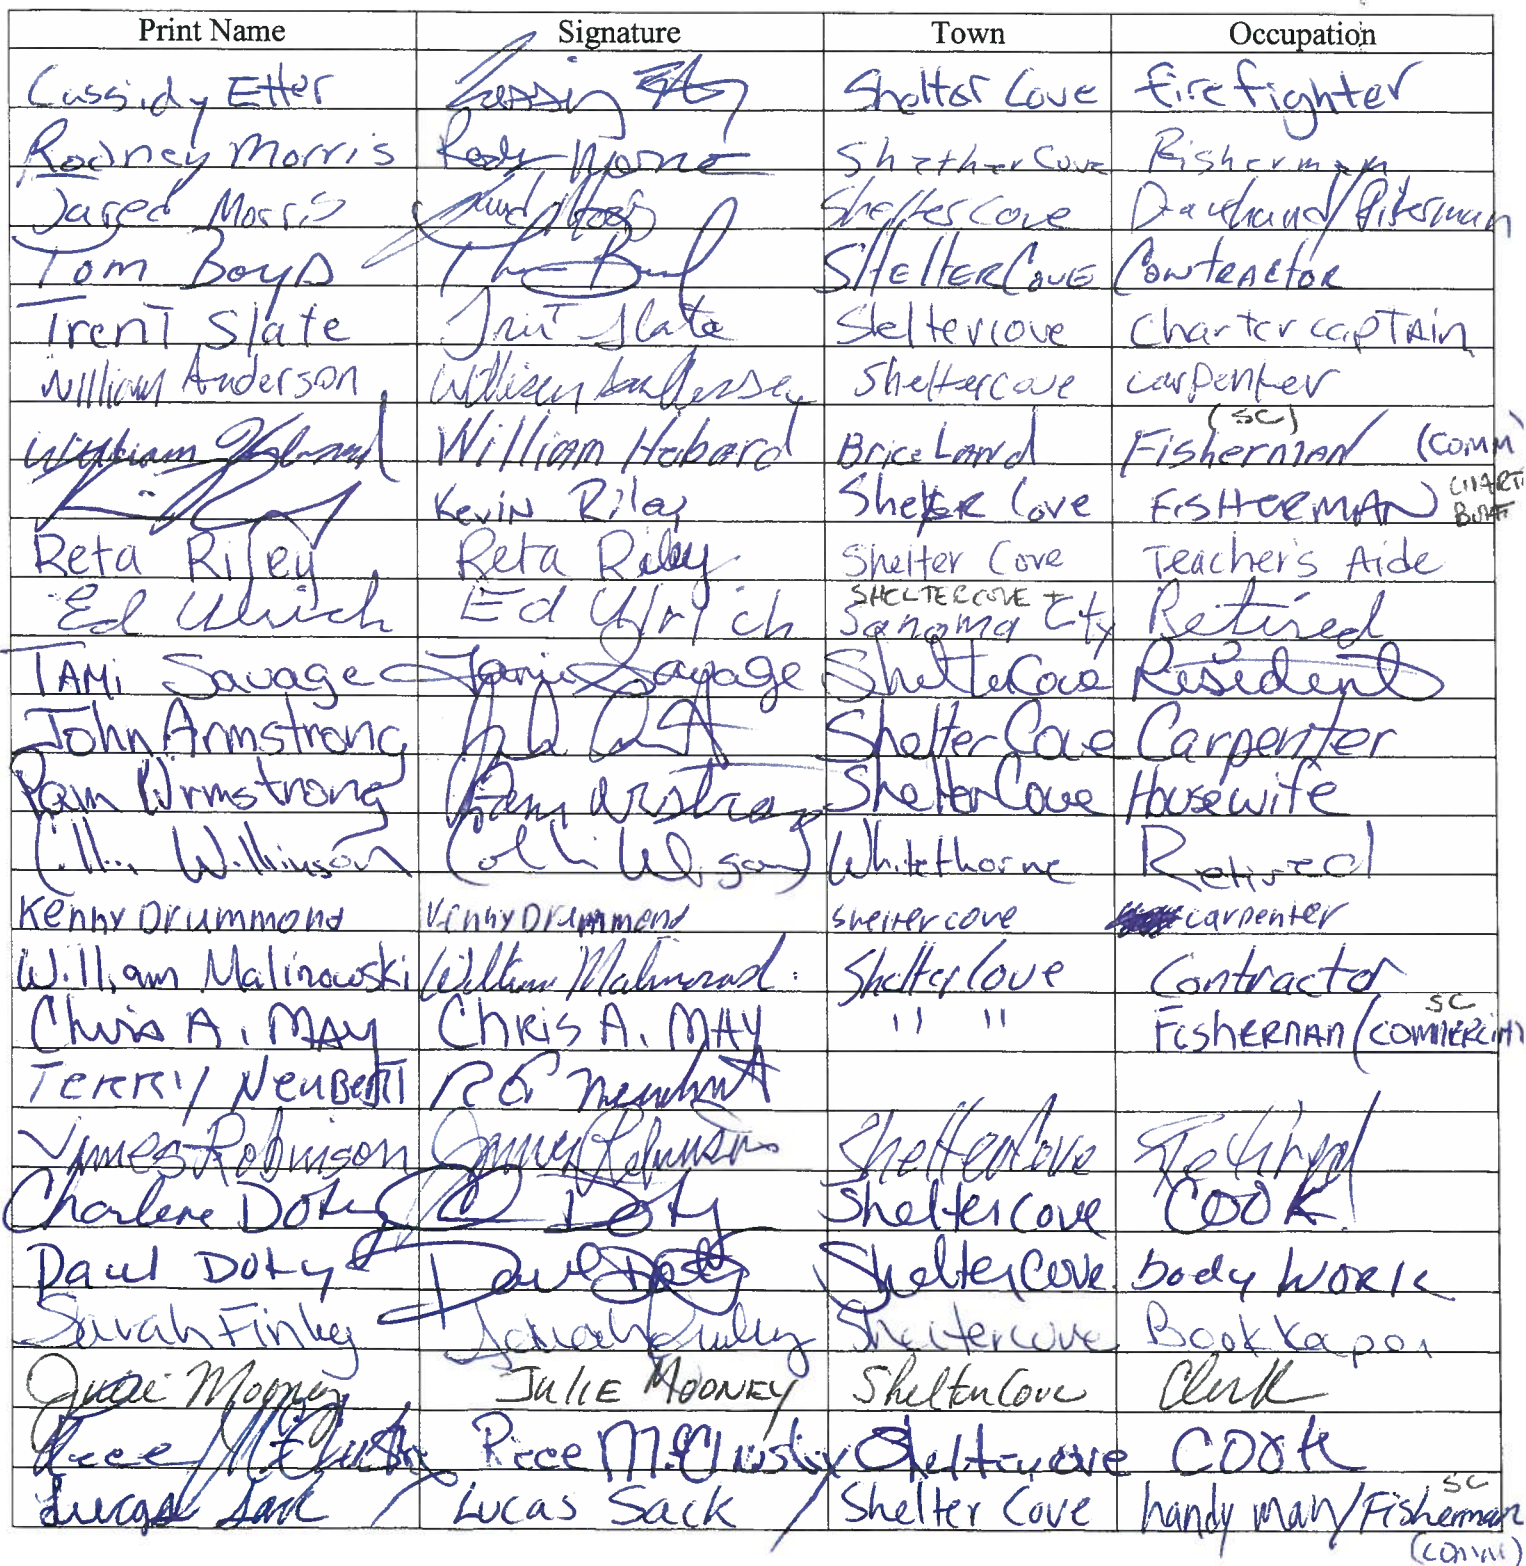 Print Name Signature Town Occupation
Cassidy Etter Shelter Cove firefighter
Rodney Morris Shelther Cove Fisherman
Jared Morris Shelter Cove Deckhand/Fisherman
Tom Boyd SHelTERCOVE CONTRACTOR
Trent Slate Trent Slate Sheltercove Charter capTAin
William Anderson Sheltercove carpenter
(SC)
William Hobard BriceLand Fisherman (COMM)
Kevin Riley Shelter Cove FisHERMAN CHART BOAT
Reta Riley Reta Riley Shelter Cove Teacher's Aide
SHELTERCOVE +
Ed Ulrich Ed Ulrich Sonoma City Retired
TAMi Savage Tami Savage Shelter Cove Resident
John Armstrong Shelter Cove Carpenter
Pam Armstrong Pam Shelter Cove Housewife
Whitethorne Retired
Kenny Drummond Kenny Drummond shelter cove carpenter
William Malinowski William Shelter Cove Contractor
SC
Chris A. MAY CHRis A. MAY " " FisHERMAN (COMMERCIAL)
TERRY NEUBERT
James Robinson James Robinson Shelter Cove Retired
Charlene Doty C Doty Shelter Cove COOK
Paul Doty Paul Doty Shelter Cove body WORK
Sarah Finley Sarah Finley Sheltercove Bookkeper
Julie Mooney JULIE MOONEY Shelter Cove Clerk
Rece Shelter cove COOK
SC
Lucas Sack Lucas Sack Shelter Cove handy man/Fisherman
(comm)